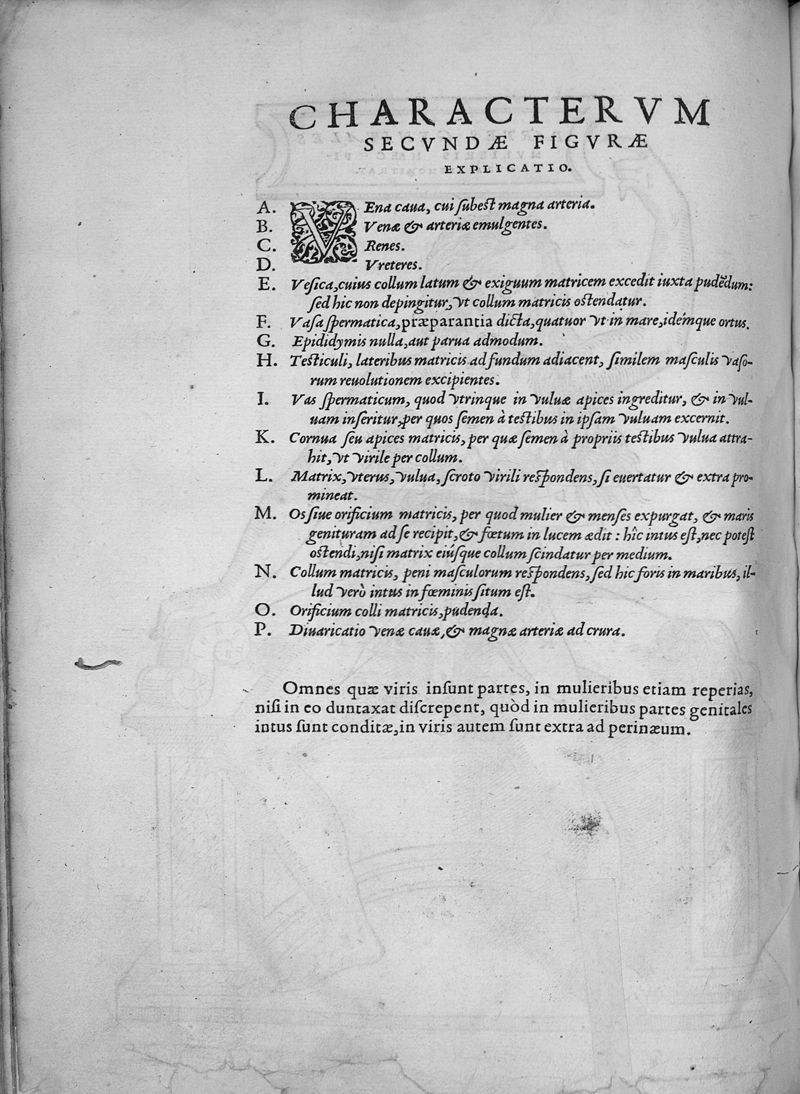 CHARACTERVM
SECVNDÆ FIGVRÆ
EXPLICATIO.
A. VEna caua, cui ſubeſt magna arteria.
B. Venæ & arteriæ emulgentes.
C. Renes.
D. Vreteres.
E. Veſica, cuius collum latum & exiguum matricem excedit iuxta pudẽdum:
ſed hic non depingitur, vt collum matricis oſtendatur.
F. Vaſa ſpermatica, præparantia dicta, quatuor vt in mare, idémque ortus.
G. Epididymis nulla, aut parua admodum.
H. Teſticuli, lateribus matricis ad fundum adiacent, ſimilem maſculis vaſo-
rum reuolutionem excipientes.
I. Vas ſpermaticum, quod vtrinque in vuluæ apices ingreditur, & in vul-
uam inſeritur, per quos ſemen à teſtibus in ipſam vuluam excernit.
K. Cornua ſeu apices matricis, per quæ ſemen à propriis teſtibus vulua attra-
hit, vt virile per collum.
L. Matrix, vterus, vulua, ſcroto virili reſpondens, ſi euertatur & extra pro-
mineat.
M. Os ſiue orificium matricis, per quod mulier & menſes expurgat, & maris
genituram ad ſe recipit, & fœtum in lucem ædit: hîc intus eſt, nec poteſt
oſtendi, niſi matrix eiúſque collum ſcindatur per medium.
N. Collum matricis, peni maſculorum reſpondens, ſed hic foris in maribus, il-
lud verò intus in fœminis ſitum eſt.
O. Orificium colli matricis, pudenda.
P. Diuaricatio venæ cauæ, & magnæ arteriæ ad crura.
Omnes quæ viris inſunt partes, in mulieribus etiam reperias,
niſi in eo duntaxat diſcrepent, quòd in mulieribus partes genitales
intus ſunt conditæ, in viris autem ſunt extra ad perinæum.